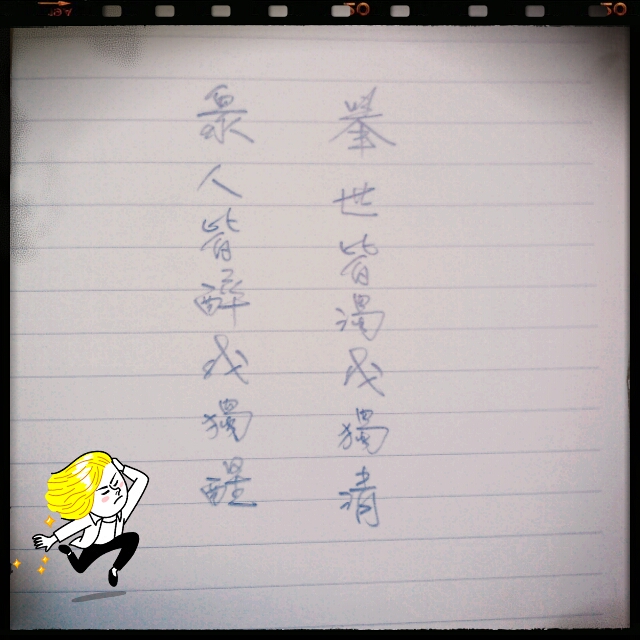 舉世皆濁我獨清
眾人皆醉我獨醒